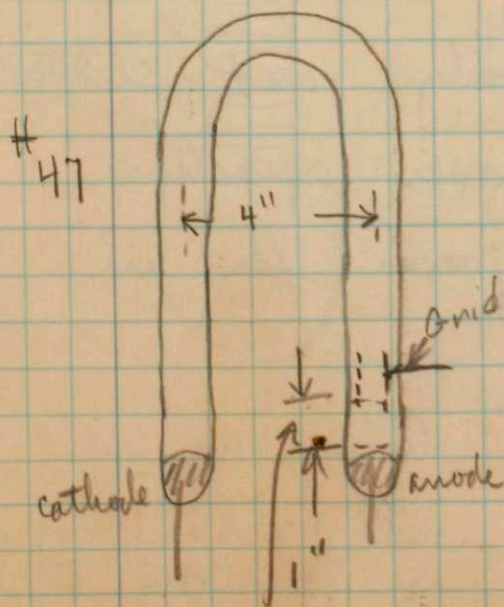 #
47
4"
Grid
cathode
anode
1"